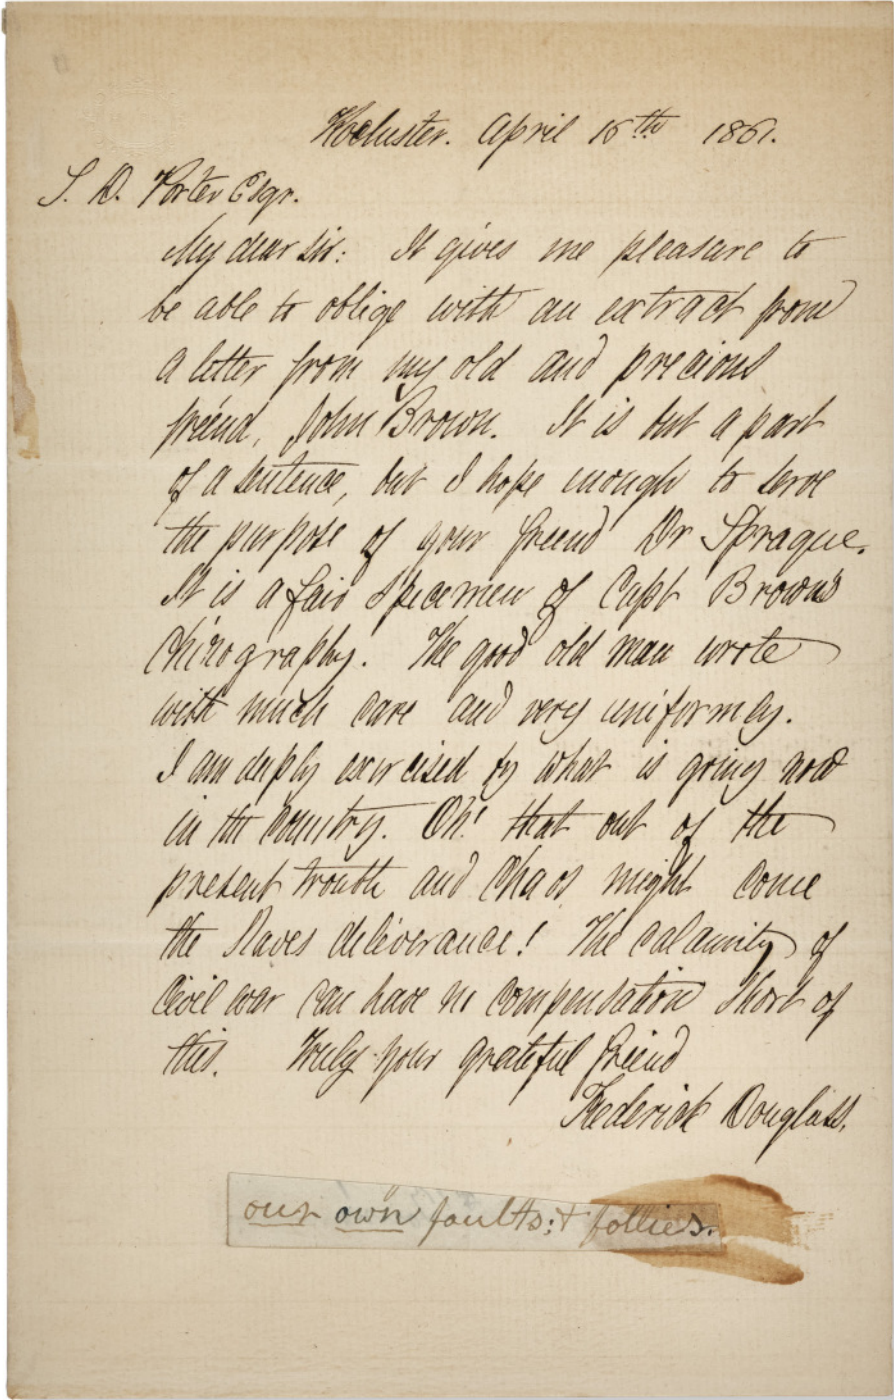 Rochester. April 15th 1861.
S. D. Porter Esqr.
My dear Sir: It gives me pleasure to
be able to oblige with an extract from
a letter from my old and precious
friend, John Brown. It is but a part
of a sentence, but I hope enough to serve
the purpose of your friend Dr Sprague.
It is a fair specimen of Capt Brown's
Chirography. The good old man wrote
with much care and very uniformly.
I am deeply exercised by what is going now
in the country. Oh! that out of the
present trouble and Chaos might come
the Slaves deliverance! The calamity of
Civil war can have no compensation short of
this. Truly your grateful friend
Frederick Douglass.
our own faults; & follies.